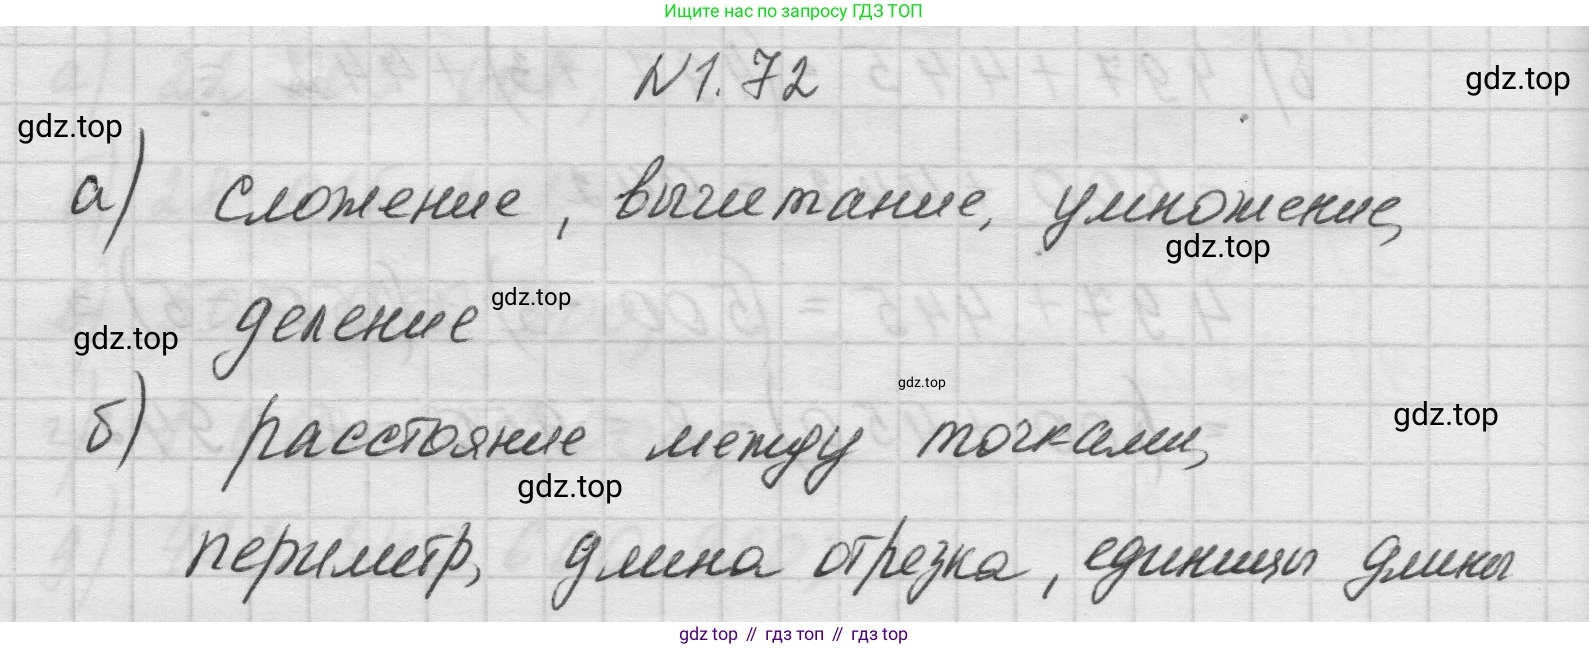 Ищите нас по запросу ГДЗ ТОП
N1.72
gdz.top
gdz.top
а) сложение, вычетание, умножение,
gdz.top
деление
gdz.top
gdz.top
gdz.top
б) расстояние между точками,
gdz.top
gdz.top
периметр, длина отрезка, единицы длины
gdz top // гдз топ // гдз top